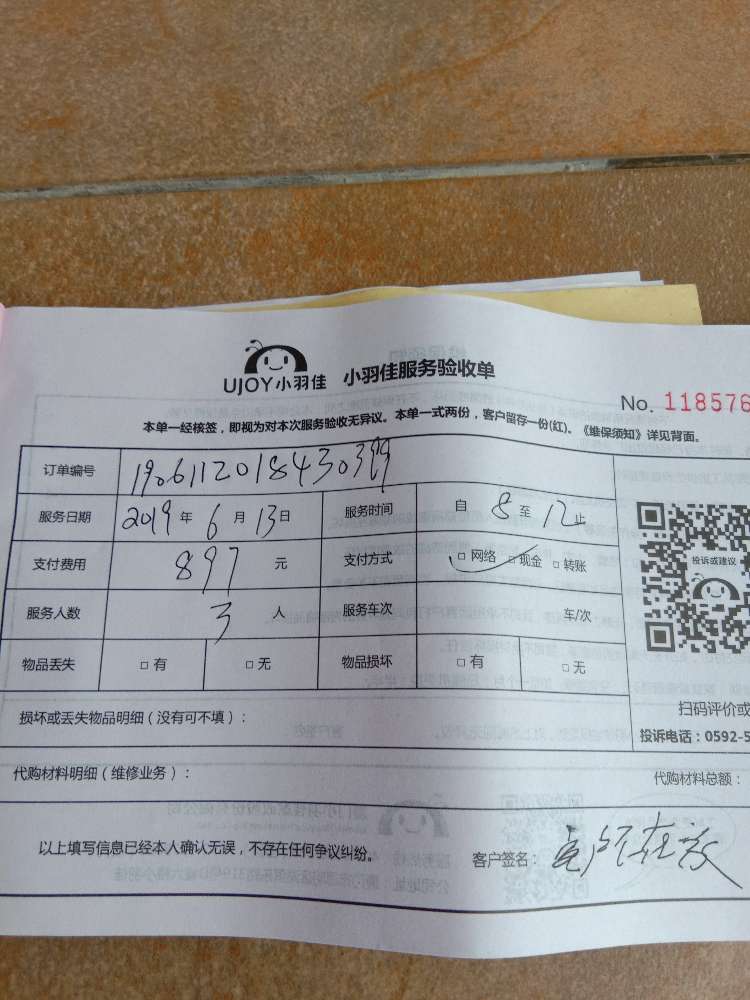 UJOY小羽佳 小羽佳服务验收单
No. 118576
本单一经核签，即视为对本次服务验收无异议。本单一式两份，客户留存一份(红)。《维保须知》详见背面。
订单编号
服务日期 2019 年 6 月 13 日 服务时间 自 8 至 12 止
支付费用 897 元 支付方式 □ 网络 □ 现金 □ 转账
投诉或建议
服务人数 3 人 服务车次 车/次
物品丢失 □ 有 □ 无 物品损坏 □ 有 □ 无
损坏或丢失物品明细（没有可不填）：
扫码评价或
投诉电话：0592-5
代购材料明细（维修业务）：
代购材料总额：
以上填写信息已经本人确认无误，不存在任何争议纠纷。 客户签名：